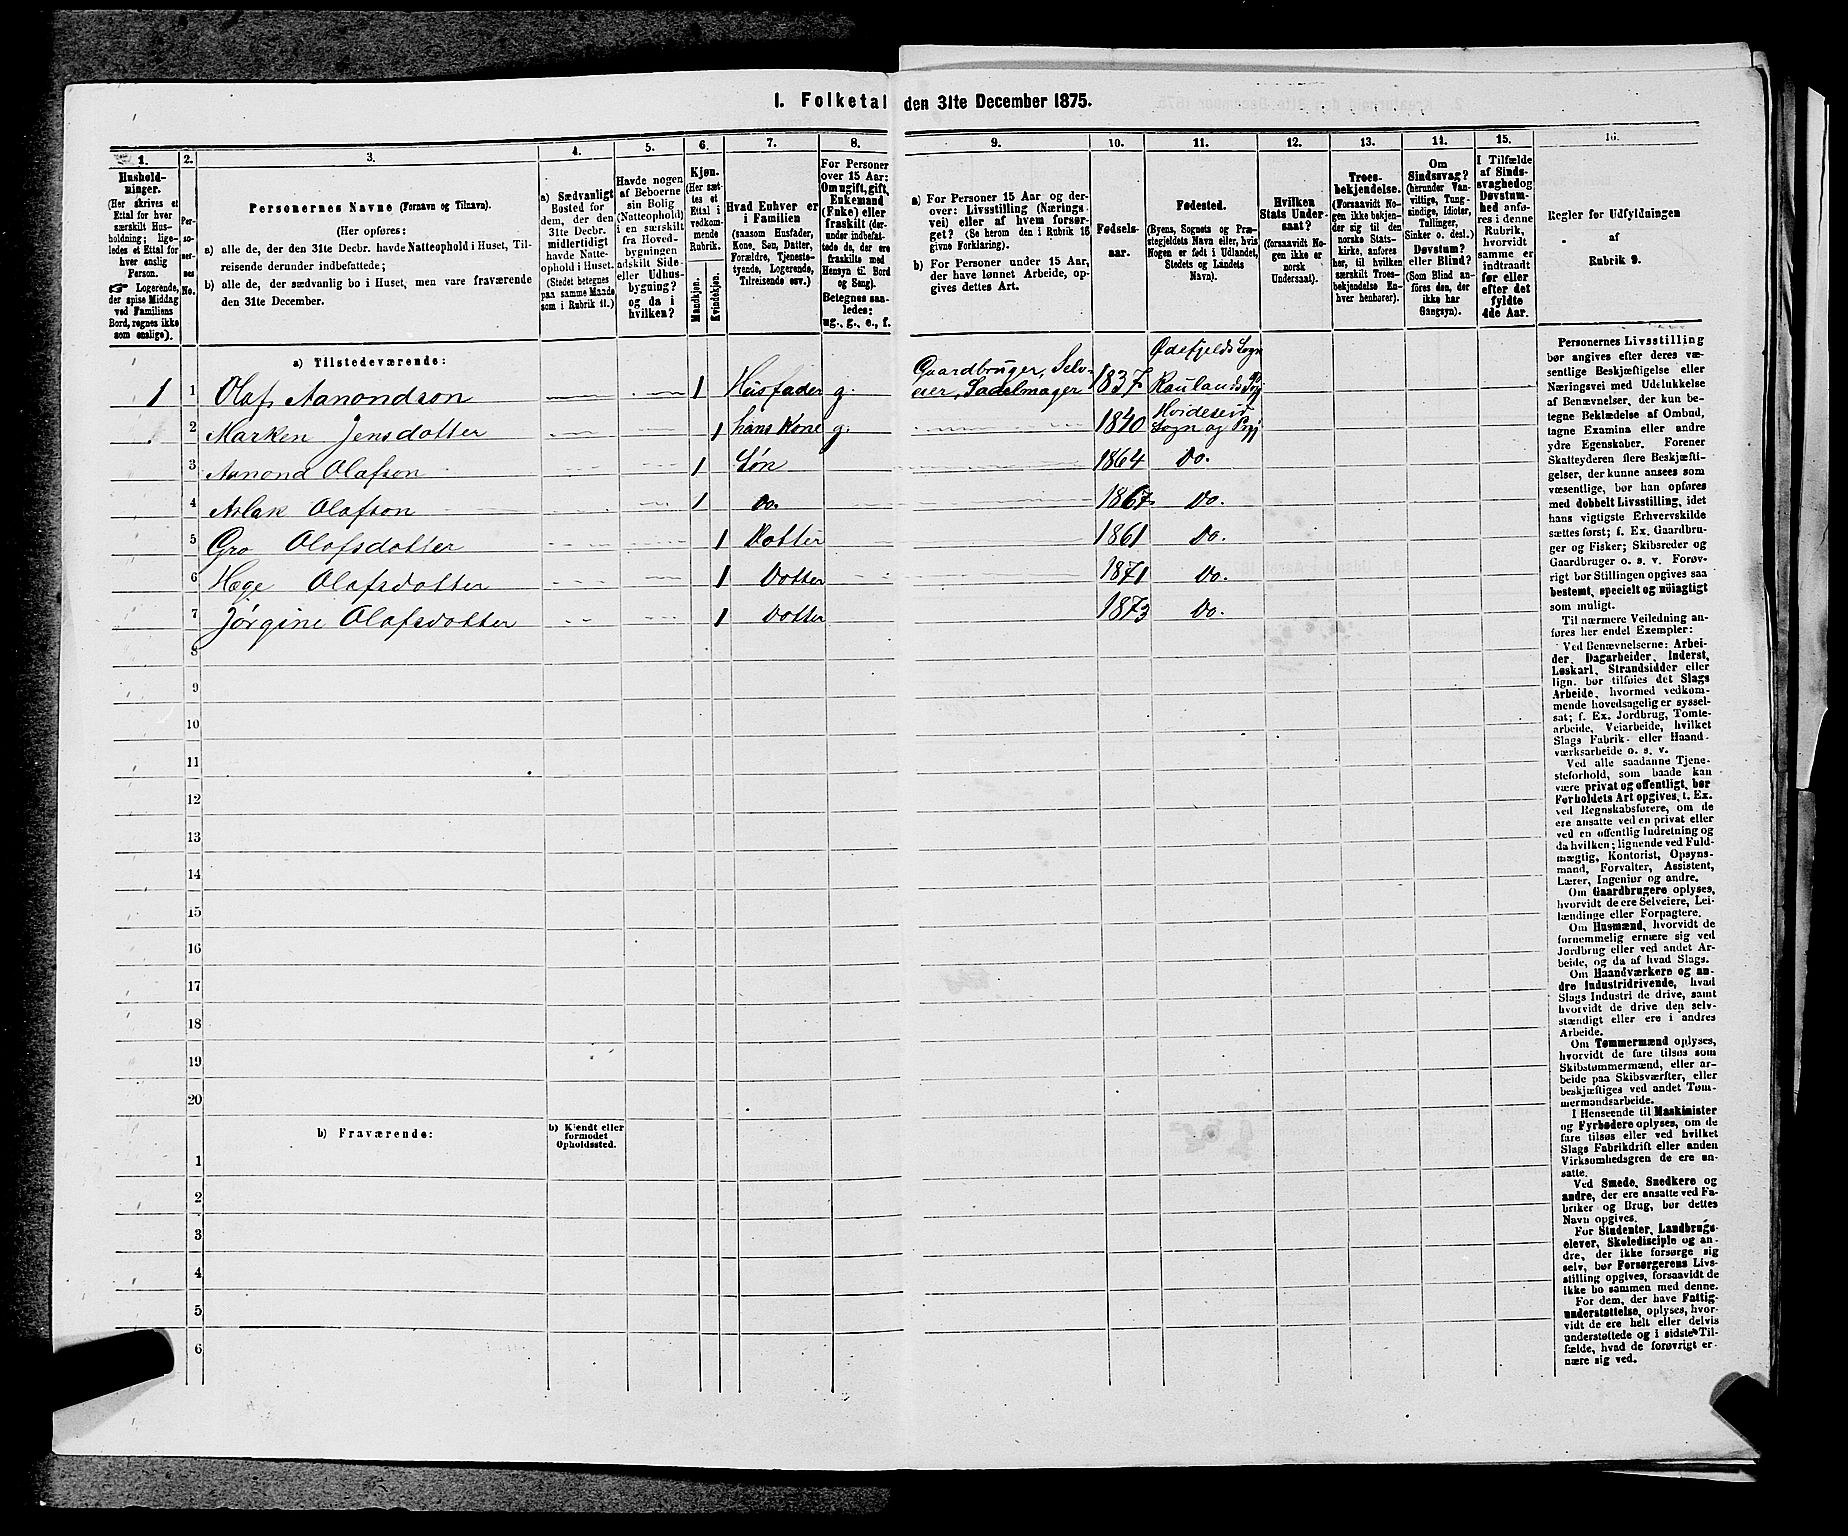 I. Folketal den 31te December 1875.
1. 2. 3. 4. 5. 6. 7. 8. 9. 10. 11. 12. 13. 14. 15. 16.
Husholdninger.
(Her skrives et
Ettal for hver
særskilt Hus-
holdning; lige-
ledes et Ettal for
hver enslig
Person.
Logerende,
der spise Middag
ved Familiens
Bord, regnes ikke
som enslige).
Per-
so-
ner-
nes
No.
Personernes Navne (Fornavn og Tilnavn).
(Her opføres:
a) alle de, der den 31te Decbr. havde Natteophold i Huset, Til-
reisende derunder indbefattede;
b) alle de, der sædvanlig bo i Huset, men vare fraværende
den 31te December.
a) Sædvanligt
Bosted for
dem, der den
31te Decbr.
midlertidigt
havde Natte-
ophold i Huset.
(Stedet betegnes
paa samme Maade
som i Rubrik 11.)
Havde nogen
af Beboerne
sin Bolig
(Natteophold)
i en særskilt
fra Hoved-
bygningen
adskilt Side-
eller Udhus-
bygning?
og da i
hvilken?
Kjøn.
(Her sæt-
tes et
Ettal i
vedkom-
mende
Rubrik.
Mandkjøn.
Kvindekjøn.
Hvad Enhver er
i Familien
(saasom Husfader,
Kone, Søn, Datter,
Forældre, Tjeneste-
tyende, Logerende,
Tilreisende osv.)
For Personer
over 15 Aar:
Om ugift, gift,
Enkemand
(Enke) eller
fraskilt (der-
under indbefat-
tede de, der ere
fraskilte med
Hensyn til Bord
og Seng).
Betegnes saa-
ledes:
ug., g., e., f.
a) For Personer 15 Aar og der-
over: Livsstilling (Nærings-
vei) eller af hvem forsør-
get? (Se herom den i Rubrik 16
givne Forklaring).
b) For Personer under 15 Aar,
der have lønnet Arbeide, op-
gives dettes Art.
Fødsels-
aar.
Fødested.
(Byens, Sognets og Præ-
stegjeldets Navn eller, hvis
Nogen er født i Udlandet,
Stedets og Landets
Navn).
Hvilken
Stats Under-
saat?
(forsaavidt No-
gen ikke er
norsk
Undersaat).
Troes-
bekjendelse.
(Forsaavidt No-
gen ikke bekjen-
der sig til den
norske Stats-
kirke, anføres
her, til hvilken
særskilt Troes-
bekjendelse En-
hver henhører).
Om
Sindssvag?
(herunder Van-
vittige, Tung-
sindige, Idioter,
Tullinger,
Sinker o. desl.)
Døvstum?
eller Blind?
(Som Blind an-
føres den, der
ikke har
Gangsyn).
I Tilfælde
af Sinds-
svaghed og
Døvstum-
hed anfø-
res i denne
Rubrik,
hvorvidt
samme er
indtraadt
før eller
efter det
fyldte
4de Aar.
Regler for Udfyldningen
af
Rubrik 9.
a) Tilstedeværende:
1 1 Olaf Aanondson 1 Husfader g. Gaardbruger, Selv-
eier, Sadelmager 1837 Ødefjelds Sogn
Raulands Pgj
2 Marken Jensdotter 1 hans Kone g. 1840 Hvideseid
Sogn og Pgj
3 Aanond Olafson 1 Søn 1864 Do.
4 Aslak Olafson 1 Do. 1867 Do.
5 Gro Olafsdotter 1 Dotter 1861 Do.
6 Hæge Olafsdotter 1 Dotter 1871 Do.
7 Jørgine Olafsdotter 1 Dotter 1873 Do.
8
9
10
11
12
13
14
15
16
17
18
19
20
b) Fraværende: b) Kjendt eller
formodet
Opholdssted.
1
2
3
4
5
6
Personernes Livsstilling
bør angives efter deres væ-
sentlige Beskjæftigelse eller
Næringsvei med Udelukkelse
af Benævnelser, der kun be-
tegne Beklædelse af Ombud,
tagne Examina eller andre
ydre Egenskaber. Forener
Skatteyderen flere Beskjæfti-
gelser, der kunne ansees som
væsentlige, bør han opføres
med dobbelt Livsstilling, idet
hans vigtigste Erhvervskilde
sættes først; f. Ex. Gaardbru-
ger og Fisker; Skibsreder og
Gaardbruger o. s. v. Forøv-
rigt bør Stillingen opgives saa
bestemt, specielt og nøiagtigt
som muligt.
Til nærmere Veiledning an-
føres her endel Exempler:
Ved Benævnelserne: Arbei-
der, Dagarbeider, Inderst,
Løskarl, Strandsidder eller
lign. bør tilføies det Slags
Arbeide, hvormed vedkom-
mende hovedsagelig er syssel-
sat; f. Ex. Jordbrug, Tomte-
arbeide, Veiarbeide, hvilket
Slags Fabrik- eller Haand-
værksarbeide o. s. v.
Ved alle saadanne Tjene-
steforhold, som baade kan
være privat og offentligt, bør
Forholdets Art opgives, t. Ex.
ved Regnskabsførere, om de
ere ansatte ved en privat eller
ved en offentlig Indretning og
da hvilken; lignende ved Fuld-
mægtig, Kontorist, Opsyns-
mand, Forvalter, Assistent,
Lærer, Ingeniør og andre.
Om Gaardbrugere oplyses,
hvorvidt de ere Selveiere, Lei-
lændinge eller Forpagtere.
Om Husmænd, hvorvidt de
fornemmelig ernære sig ved
Jordbrug eller ved andet Ar-
beide, og da af hvad Slags.
Om Haandværkere og an-
dre Industridrivende, hvad
Slags Industri de drive, samt
hvorvidt de drive den selv-
stændigt eller ere i andres
Arbeide.
Om Tømmermænd oplyses,
hvorvidt de fare tilsøs som
Skibstømmermænd, eller ar-
beide paa Skibsværfter, eller
beskjæftiges ved andet Tøm-
mermandsarbeide.
I Henseende til Maskinister
og Fyrbødere oplyses, om de
fare tilsøs eller ved hvilket
Slags Fabrikdrift eller anden
Virksomhedsgren de ere an-
satte.
Ved Smede, Snedkere og
andre, der ere ansatte ved Fa-
briker og Brug, bør dettes
Navn opgives.
For Studenter, Landbrugs-
elever, Skoledisciple og an-
dre, der ikke forsørge sig
selv, bør Forsørgerens Livs-
stilling opgives, forsaavidt de
ikke bo sammen med denne.
For dem, der have Fattig-
understøttelse, oplyses, hvor-
vidt de ere helt eller delvis
understøttede og i sidste Til-
fælde, hvad de forøvrigt er-
nære sig ved.